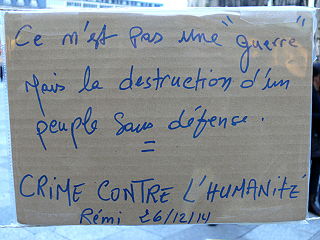 Ce n'est pas une "guerre"
Mais la destruction d'un
peuple sans défense.
=
CRIME CONTRE L'HUMANITÉ
Rémi 26/12/14